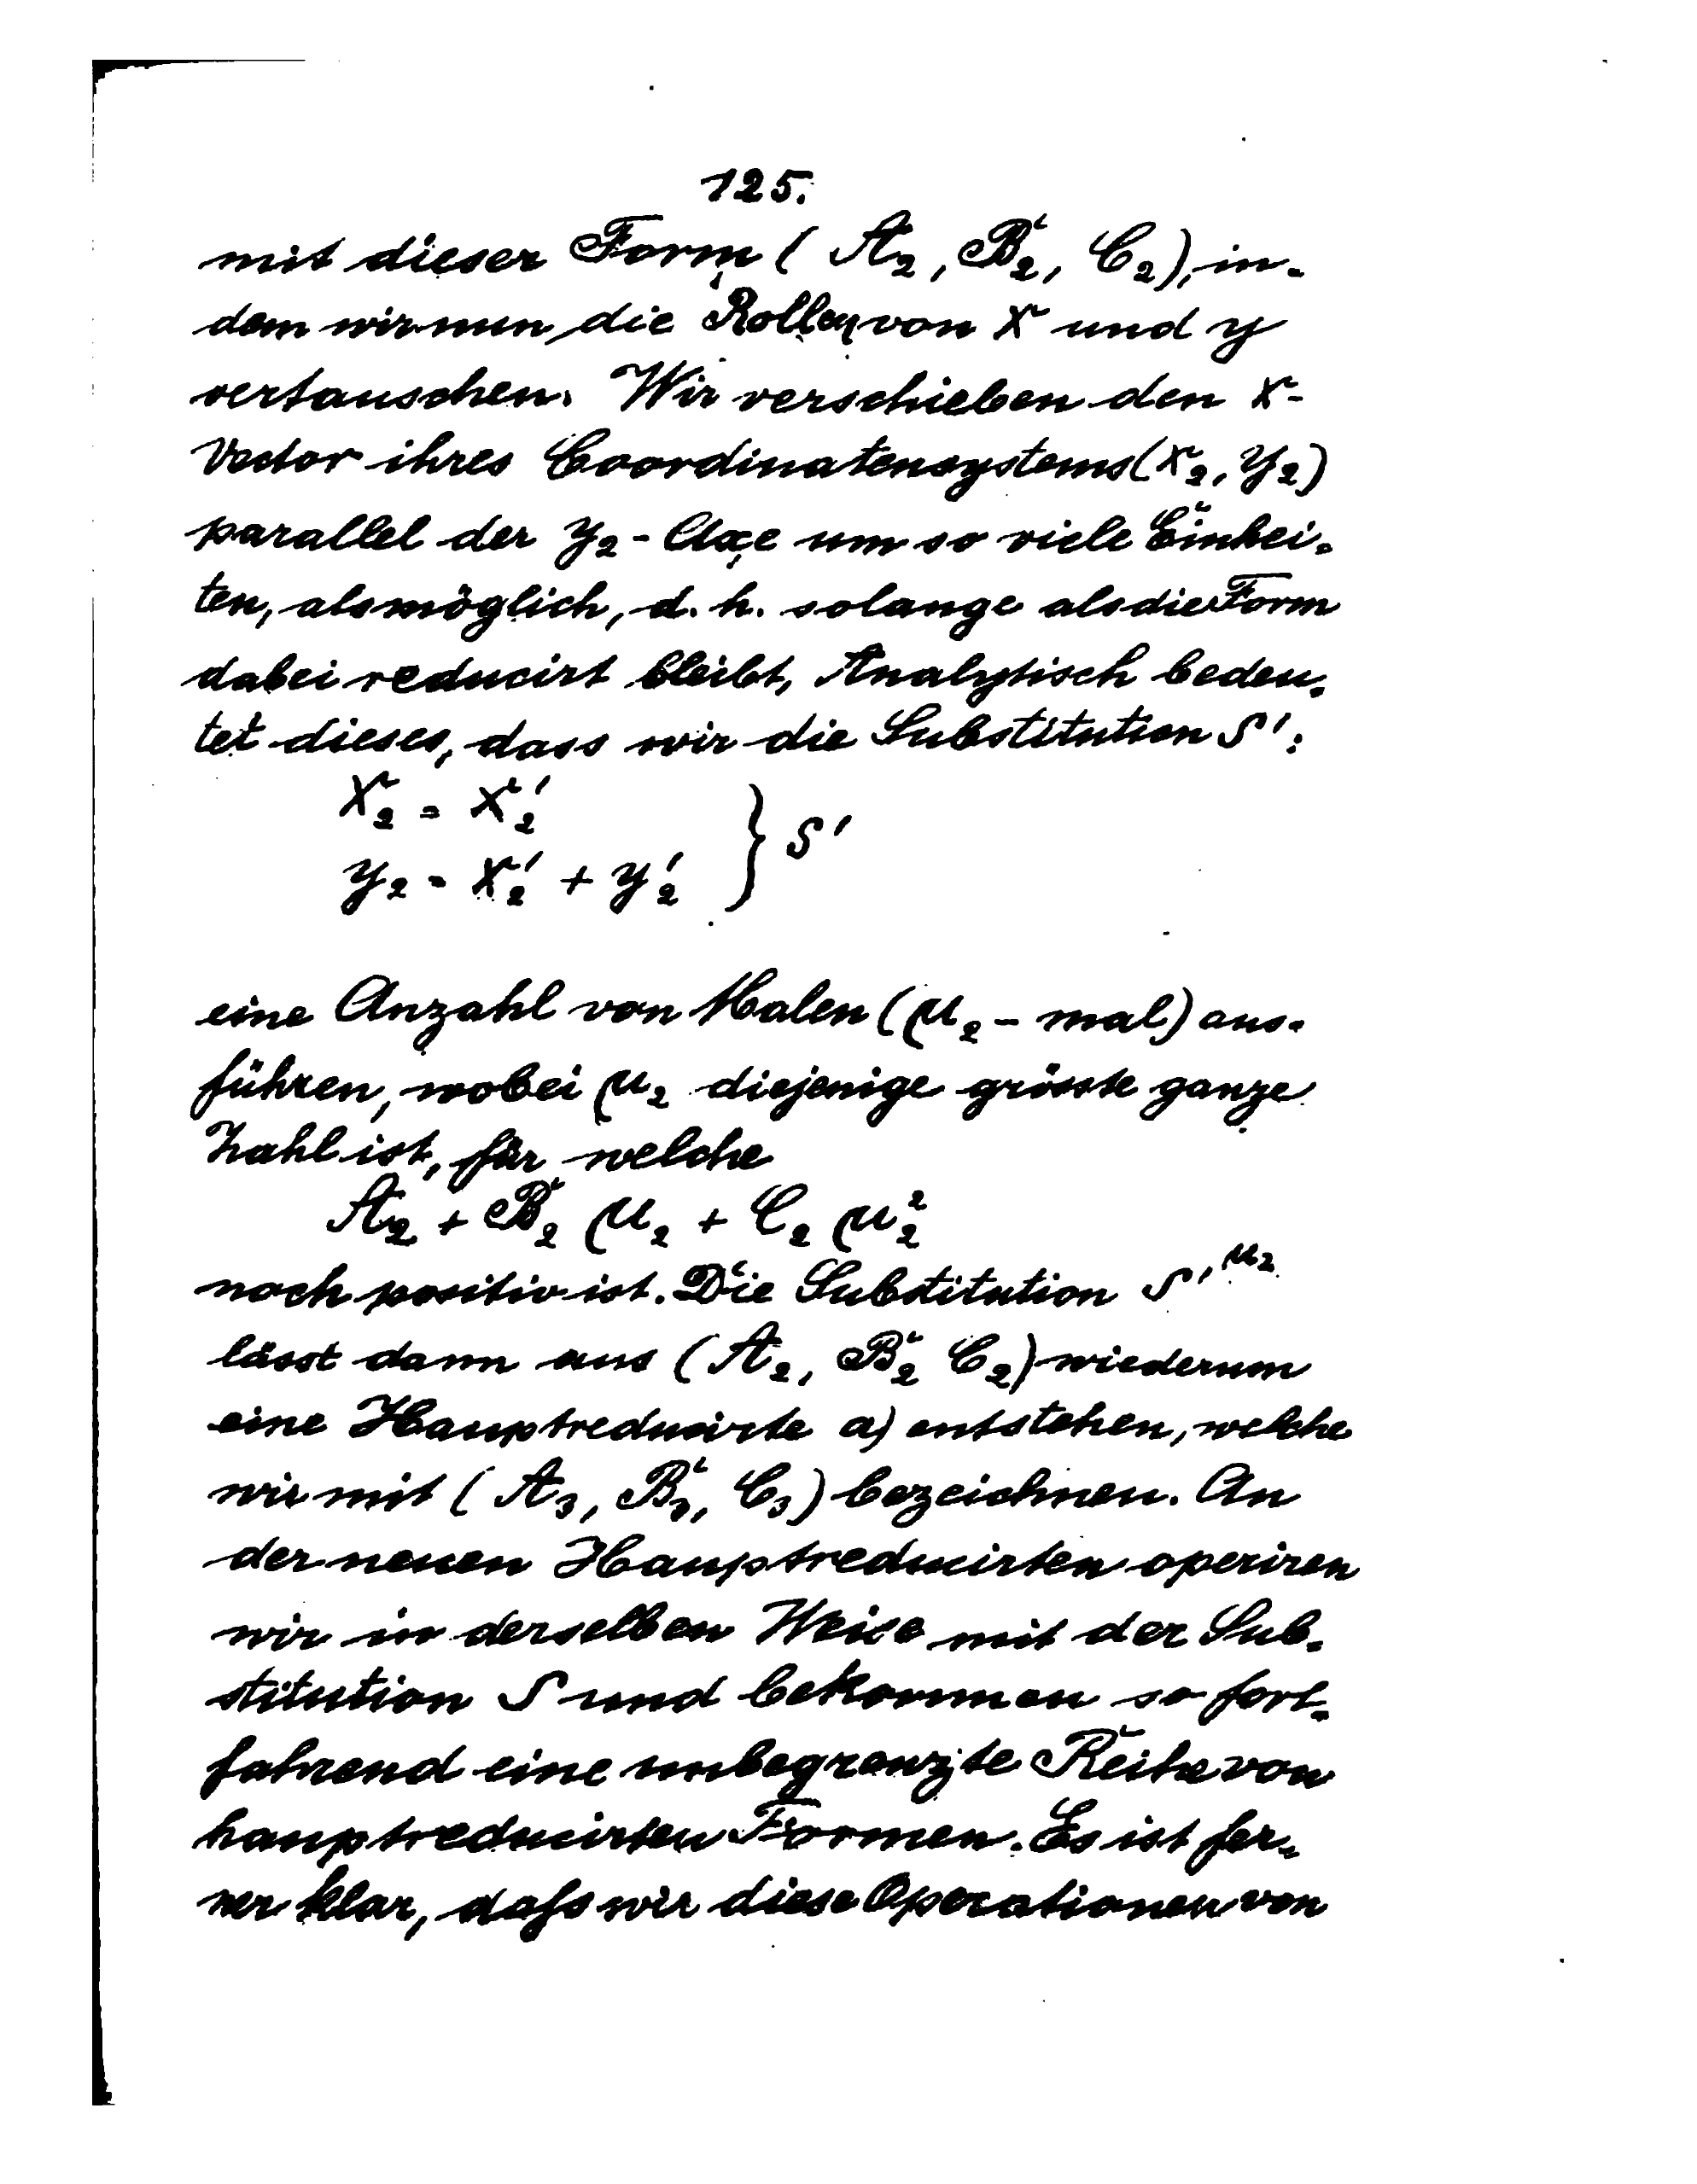 125.
mit dieser Form (A₂, B₂, C₂), in-
dem wir nun die Rollen von x und y
vertauschen. Wir verschieben den x-
Vector ihres Coordinatensystems (x₂, y₂)
parallel der y₂-Axe um so viele Einhei-
ten, als möglich, d. h. solange als die Form
dabei reducirt bleibt, Analytisch bedeu-
tet dieses, dass wir die Substitution S':
x₂ = x₂'
y₂ = x₂' + y₂' } S'
eine Anzahl von Malen (μ₂-mal) aus-
führen, wobei μ₂ diejenige grösste ganze
Zahl ist, für welche
A₂ + B₂ μ₂ + C₂ μ₂²
noch positiv ist. Die Substitution S'^μ₂
lässt dann aus (A₂, B₂ C₂) wiederum
eine Hauptreducirte a) entstehen, welche
wir mit (A₃, B₃, C₃) bezeichnen. An
der neuen Hauptreducirten operiren
wir in derselben Weise mit der Sub-
stitution S und bekommen so fort-
fahrend eine unbegrenzte Reihe von
hauptreducirten Formen. Es ist fer-
ner klar, dafs wir diese Operationen von